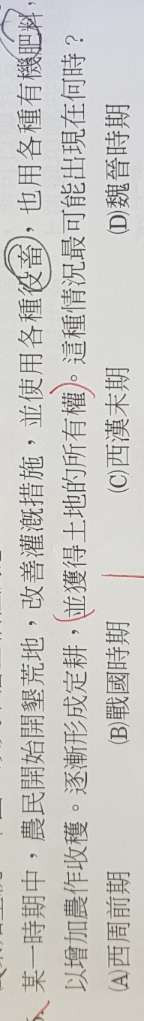 某一時期中，農民開始開墾荒地，改善灌溉措施，並使用各種役畜，也用各種有機肥料，
以增加農作收穫。逐漸形成定耕，並獲得土地的所有權。這種情況最可能出現在何時？
(A)西周前期 (B)戰國時期 (C)西漢末期 (D)魏晉時期